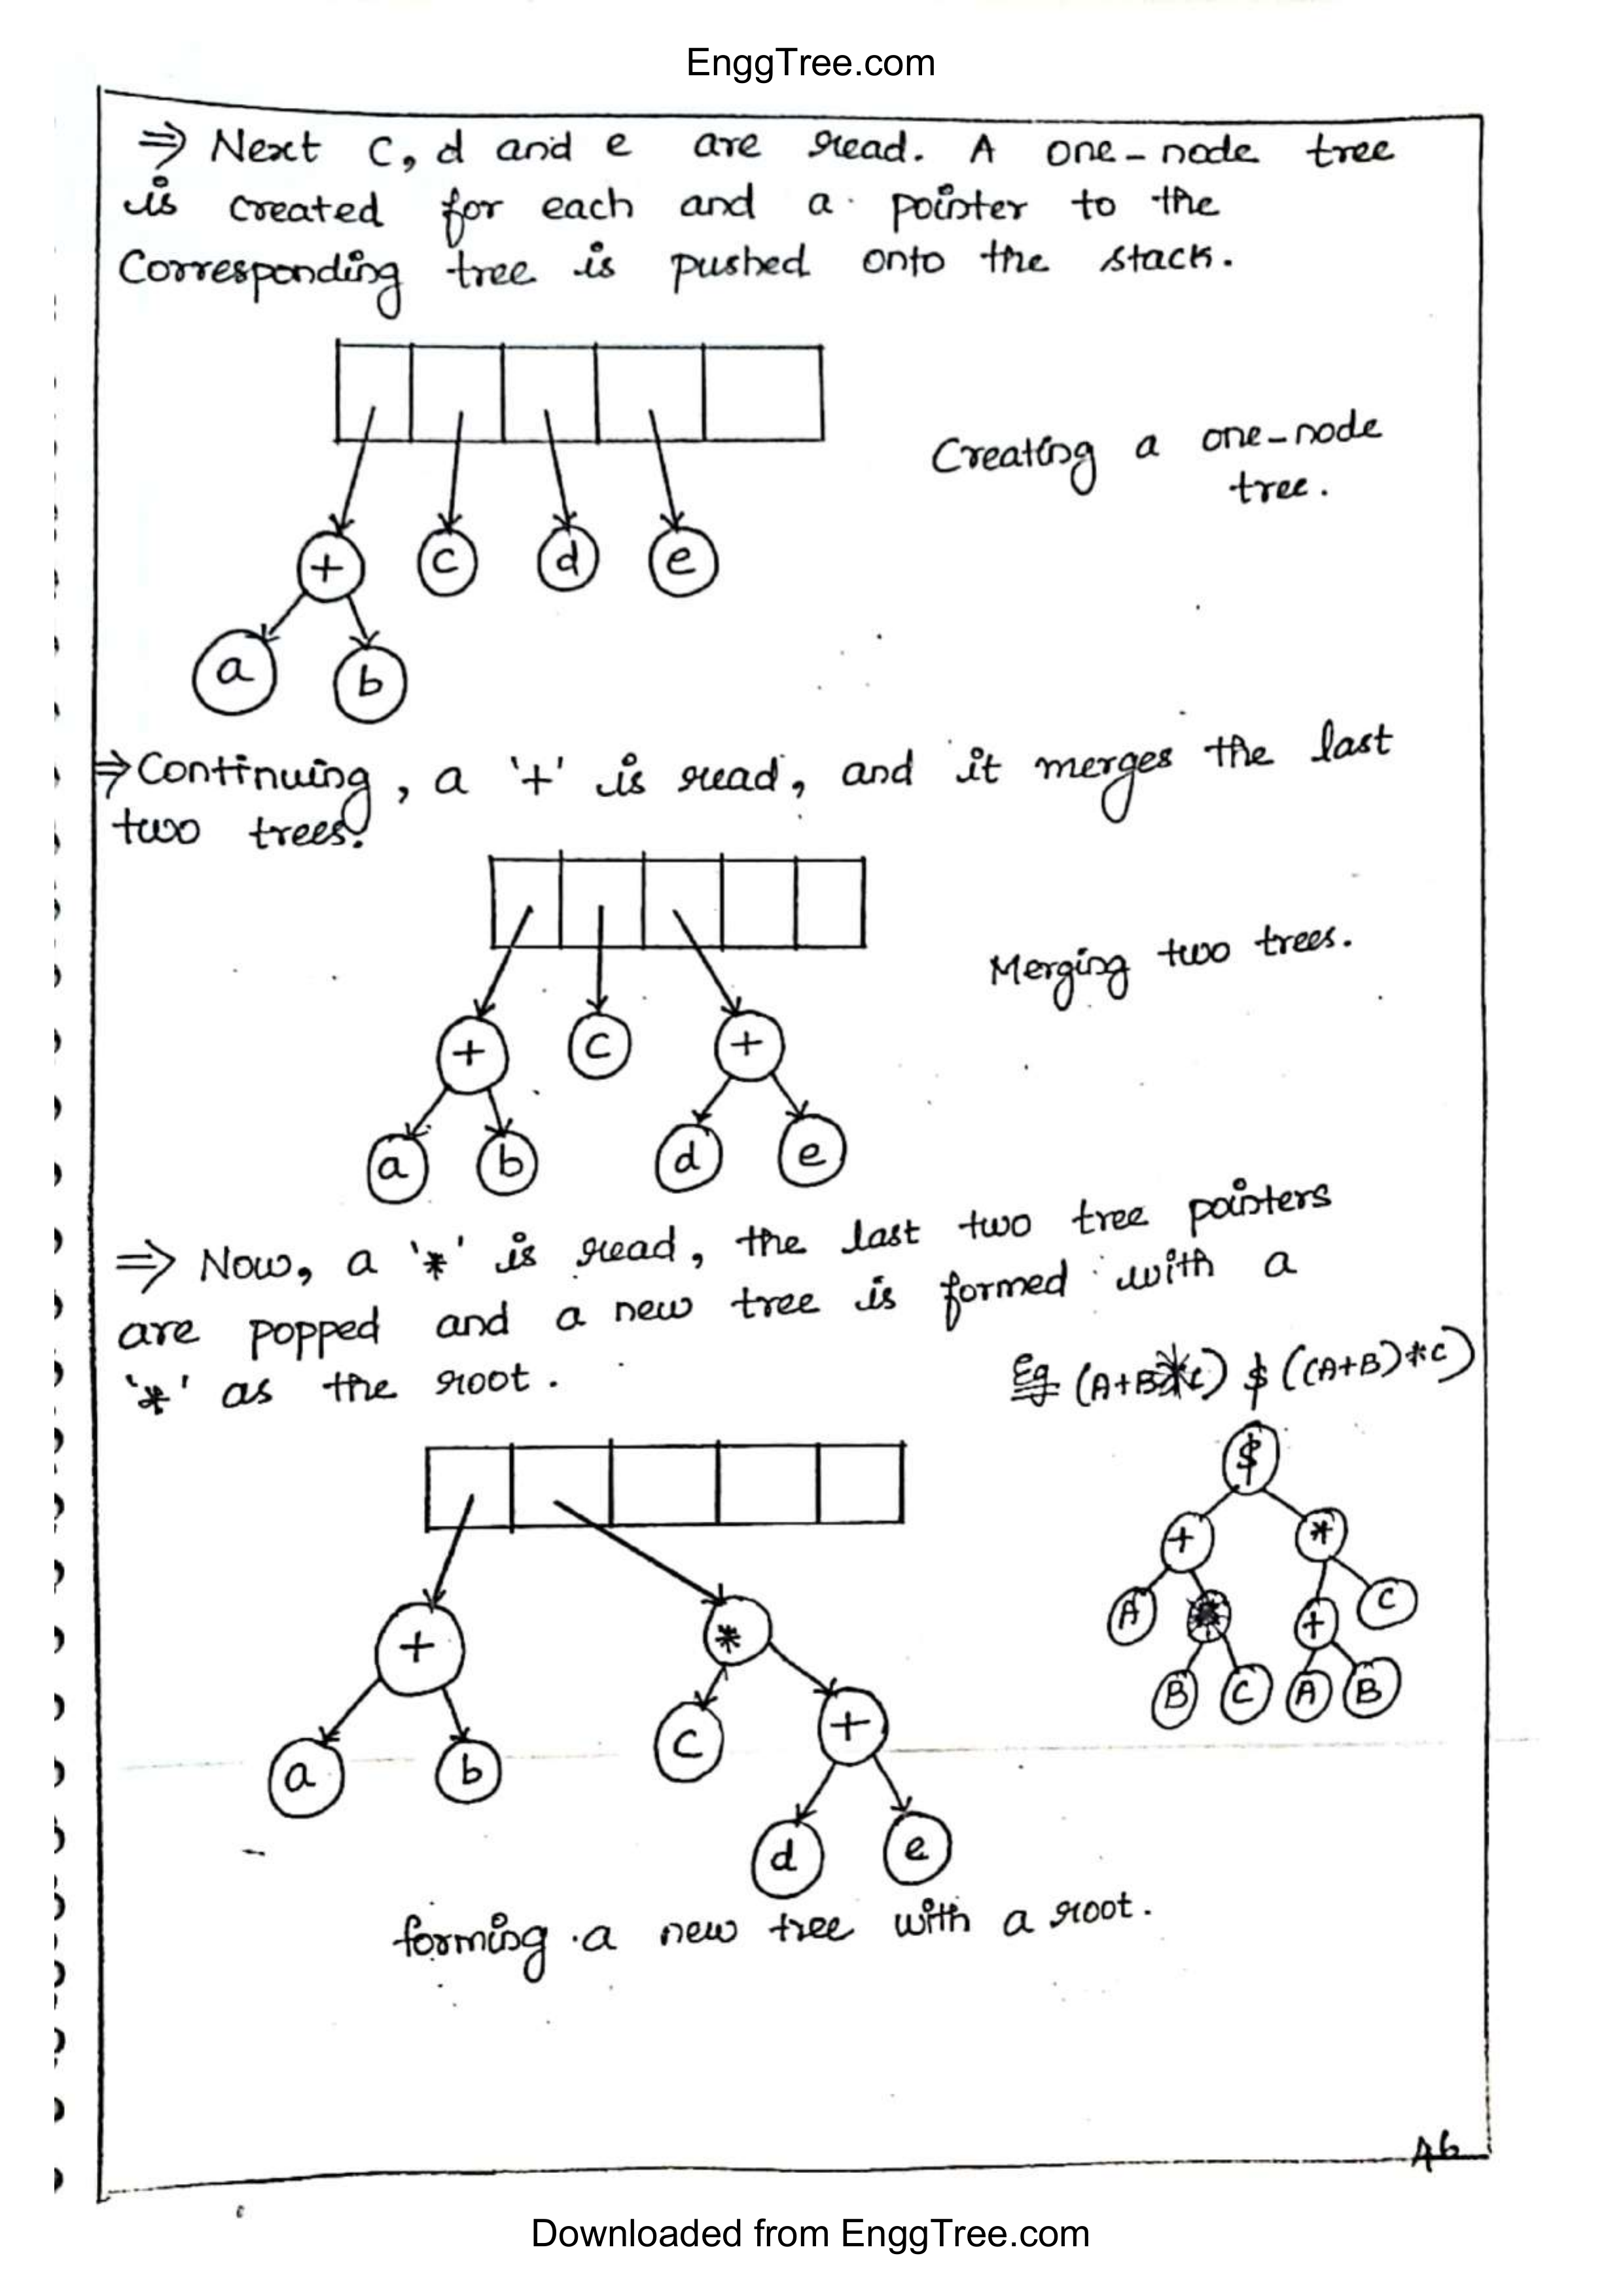 EnggTree.com
⇒ Next c, d and e are read. A one-node tree
is created for each and a pointer to the
Corresponding tree is pushed onto the stack.
Creating a one-node
tree.
+ c d e
a b
⇒ Continuing, a '+' is read, and it merges the last
two trees.
Merging two trees.
+ c +
a b d e
⇒ Now, a '*' is read, the last two tree pointers
are popped and a new tree is formed with a
'*' as the root.
Eg (A+B*C) $ ((A+B)*C)
$
+ *
A + C
B C A B
+ *
a b c +
d e
forming a new tree with a root.
46
Downloaded from EnggTree.com